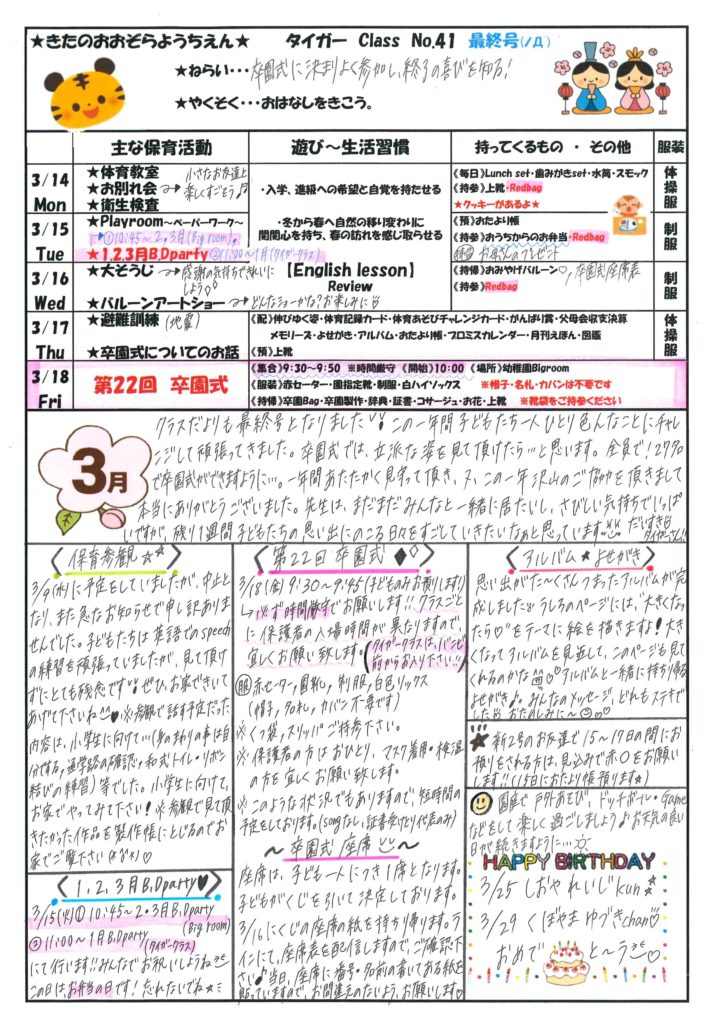 ★きたのおおぞらようちえん★ タイガー Class No.41 最終号(/Д)
★ねらい・・・卒園式に決まりよく参加し、終了の喜びを知る!
★やくそく・・・おはなしをきこう。
主な保育活動 遊び～生活習慣 持ってくるもの ・ その他 服装
3/14 Mon
★体育教室
★お別れ会
小さなお友達と楽しくすごそう♪
★衛生検査
・入学、進級への希望と自覚を持たせる
《毎日》Lunch set・歯みがきset・水筒・スモック
《持参》上靴・Redbag
★クッキーがあるよ★
体操服
3/15 Tue
★Playroom～ペーパーワーク～
①10:45～2.3月(Big room)。
★1,2,3月B,Dparty ②11:00～1月(タイガークラス)
・冬から春へ自然の移り変わりに
関関心を持ち、春の訪れを感じ取らせる
《預》おたより帳
《持参》おうちからのお弁当・Redbag
お家んのプレゼント
制服
3/16 Wed
★大そうじ
感謝の気持ちで
★バルーンアートショー
どんなショーかな?お楽しみに
【English lesson】
Review
《持帰》おみやげバルーン♡, 卒園式座席表
《持参》Redbag
制服
3/17 Thu
★避難訓練 (地震)
★卒園式についてのお話
《配》伸びゆく姿・体育記録カード・体育あそびチャレンジカード・がんばり賞・父母会収支決算
メモリーズ・よせがき・アルバム・おたより帳・プロミスカレンダー・月刊えほん・図鑑
《預》上靴
体操服
3/18 Fri
第22回 卒園式
《集合》9:30～9:50 ※時間厳守 《開始》10:00 《場所》幼稚園Bigroom
《服装》赤セーター・園指定靴・制服・白ハイソックス ※帽子・名札・カバンは不要です
《持帰》卒園Bag・卒園製作・辞典・証書・コサージュ・お花・上靴 ※靴袋をご持参ください
制服
3月
クラスだよりも最終号となりました!! この一年間子どもたち一人ひとり色んなことにチャレ
ンジして頑張ってきました。卒園式では、立派な姿を見て頂けたら…と思います。全員で!27名
で卒園式ができますように…。一年間あたたかく見守って頂き、又、この一年沢山のご協力を頂きまして
本当にありがとうございました。先生は、まだまだみんなと一緒に居たいし、さびしい気持ちでいっぱ
いですが、残り1週間子どもたちの思い出にのこる日々をすごしていきたいなぁと思っています!! だいすき
タイガーさん!!
〈保育参観★★〉
3/9(水)に予定をしていましたが、中止と
なり、また急なお知らせで申し訳ありま
せんでした。子どもたちは英語でのspeech
の練習を頑張っていましたが、見て頂け
ずにとても残念です!! ぜひ、お家できいて
あげて下さいね♡ ※参観で話す予定だった
内容は、小学生に向けて…(身のまわりの事は自
分でする、通学路の確認、和式トイレ・リボン
結びの練習)等でした。小学生に向けて、
お家でやってみて下さい! ※参観で見て頂
きたかった作品を製作帳にとじるのでお
家でご覧下さい ♡
〈1,2,3月B,Dparty♥〉
3/15(火)①10:45～2・3月B,Dparty
(Big room)
②11:00～1月B,Dparty
(タイガークラス)
にて行います!!みんなでお祝いしようね
この日はお弁当の日です!忘れないでね★
〈第22回 卒園式♦◇〉
3/18(金)9:30～9:45(子どものみお預りします!)
↳必ず時間厳守でお願いします!!クラスごと
に保護者の入場時間が異なりますので、
宜しくお願い致します。(タイガークラスは、バンビ
前からお入り下さい!!)
服 赤セーター、園靴、制服、白色ソックス
(帽子、名札、カバン不要です)
※くつ袋、スリッパご持参下さい。
※保護者の方はおひとり、マスク着用・検温
の方を宜しくお願い致します。
※このような状況でもありますので、短時間の
予定をしております。(songなし、証書受けとり代表のみ)
～卒園式 座席～
座席は、子ども一人につき1席となります。
子どもがくじを引いて決定しております。
3/16にくじの座席の紙を持ち帰ります。ラ
インにて、座席表を配信しますので、ご確認下
さい♪当日、座席に番号・名前の書いてある紙を
貼っていますので、お間違えのないよう、お願いします♡
〈アルバム★よせがき〉
思い出がた～くさんつまったアルバムが完
成しました!! うしろのページには、“大きくなっ
たら♡”をテーマに絵を描きますよ!大き
くなってアルバムを見返して、このページも見て
くれるのかな ♡アルバムと一緒に持ち帰る
よせがき♪。みんなのメッセージ、どれもステキで
した おたのしみに～
★新2号のお友達で15～17日の間にお
預りをされる方は、見込みで赤○をお願い
します!!(15日におたより帳預ります★)
園庭で戸外あそび、ドッチボール・Game
などをして楽しく過ごしましょう♪お天気の良い
日が続きますように…
HAPPY BiRTHDAY
3/25 しおや れいじkun★
3/29 くぼやま ゆづきchan♡
おめで と～う